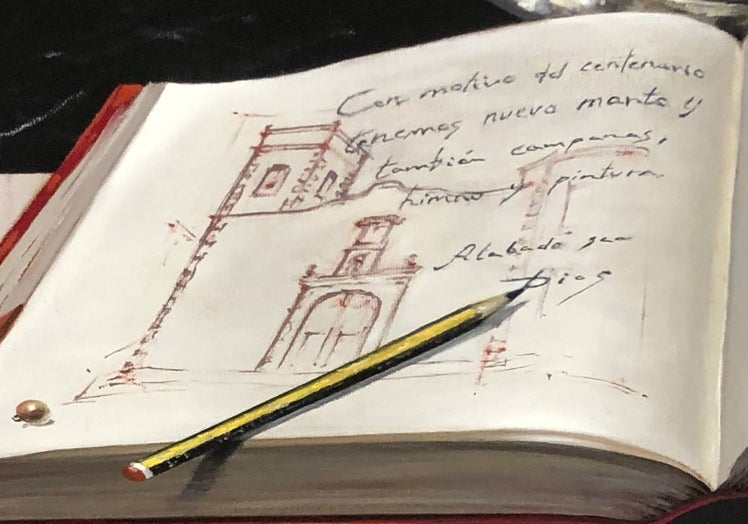 Con motivo del centenario
tenemos nuevo manto y
también campanas,
himno y pintura.
Alabado sea
Dios